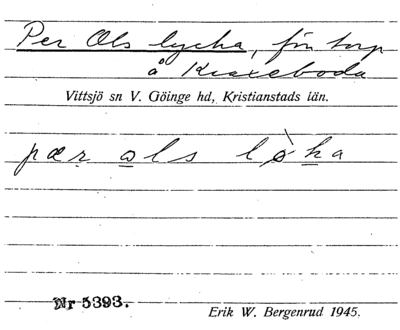 Per Ols lycka, för torp
å Kraxeboda
Vittsjö sn V. Göinge hd, Kristianstads län.
pær ols løka
Nr 5393.
Erik W. Bergenrud 1945.